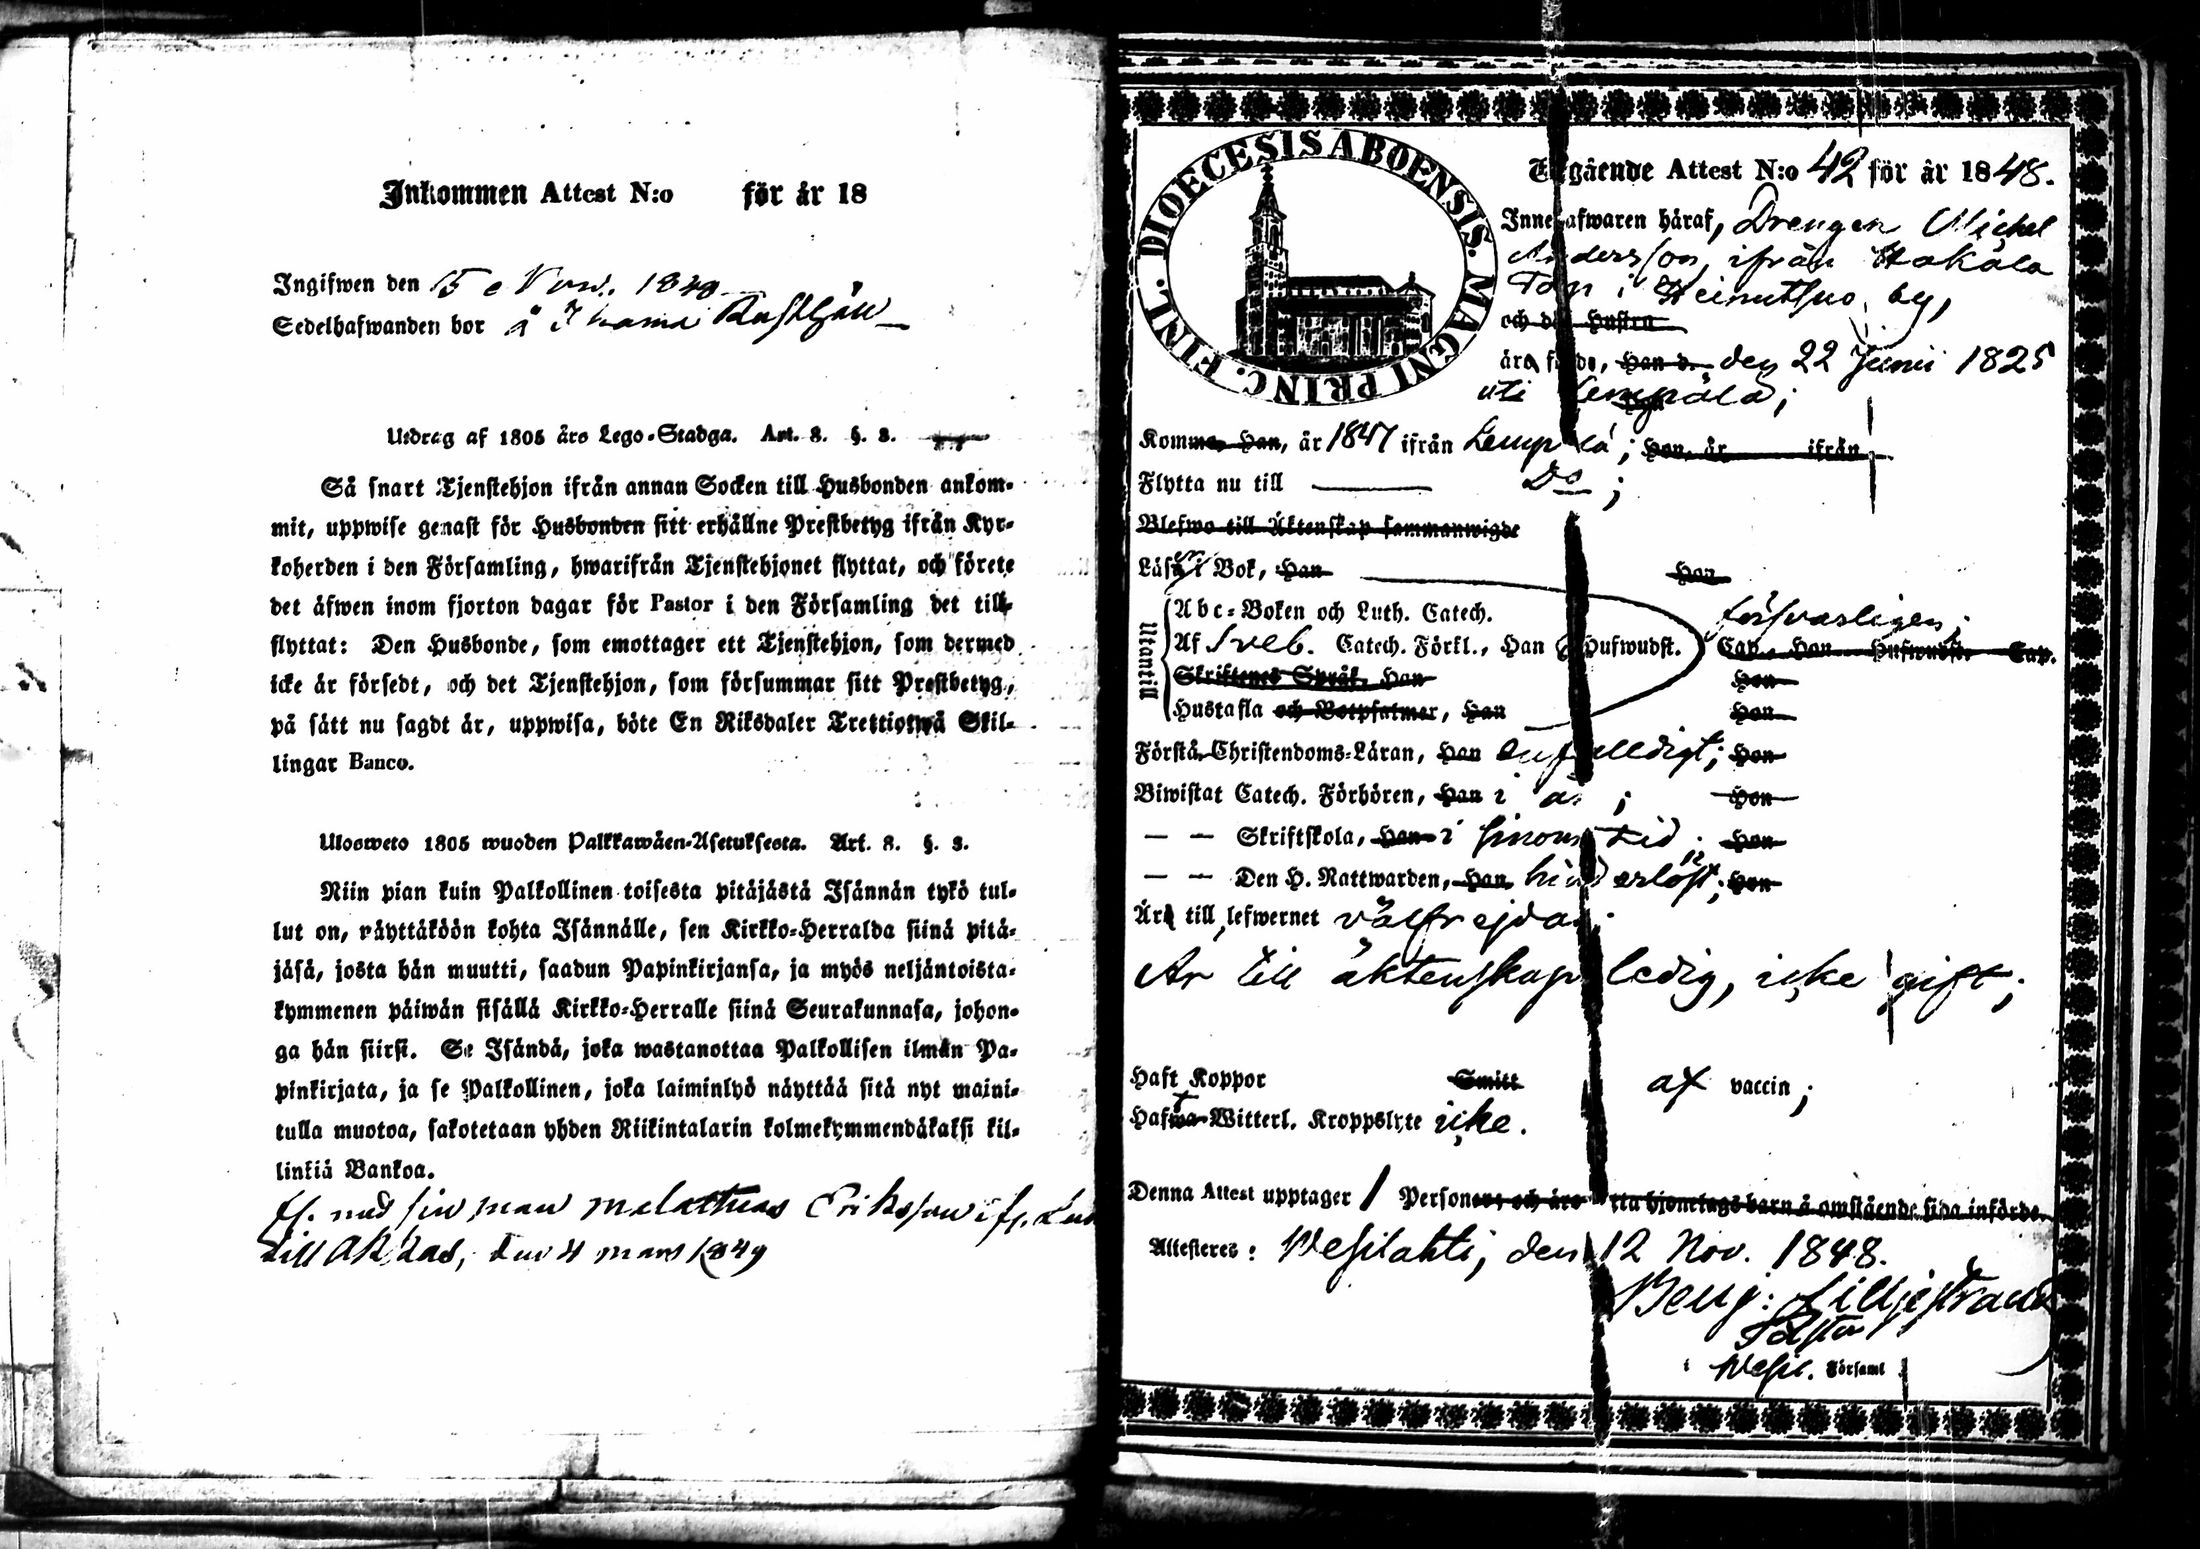 Inkommen Attest N:o för år 18
Ingifwen den 15 Nov. 1848
Sedelhafwanden bor å
Utdrag af 1805 års Lego-Stadga. Art. 8. §. 3.
Så snart Tjenstehjon ifrån annan Socken till Husbonden ankom-
mit, uppwise genast för Husbonden sitt erhållne Prestbetyg ifrån Kyr-
koherden i den Församling, hwarifrån Tjenstehjonet flyttat, och förete
det äfwen inom fjorton dagar för Pastor i den Församling det till-
flyttat: Den Husbonde, som emottager ett Tjenstehjon, som dermed
icke är försedt, och det Tjenstehjon, som försummar sitt Prestbetyg,
på sätt nu sagdt är, uppwisa, böte En Riksdaler Trettiotwå Skil-
lingar Banco.
Ulosweto 1805 wuoden Palkkawäen-Asetuksesta. Art. 8. §. 3.
Niin pian kuin Palkollinen toisesta pitäjästä Isännän tykö tul-
lut on, räyttäköön kohta Isännälle, sen Kirkko-Herralda siinä pitä-
jäsä, josta hän muutti, saadun Papinkirjansa, ja myös neljäntoista-
kymmenen päiwän sisällä Kirkko-Herralle siinä Seurakunnasa, johon-
ga hän siirsi. Se Isändä, joka wastanottaa Palkollisen ilman Pa-
pinkirjata, ja se Palkollinen, joka laiminlyö näyttää sitä nyt maini-
tulla muotoa, sakotetaan yhden Riikintalarin kolmekymmendäkaksi kil-
linkiä Bankoa.
fl. med sin man Eriksson
till den 4 mars 1849
DIOECESIS ABOENSIS. MAGNI PRINC. FINL.
Utgående Attest N:o 42 för år 1848.
Innehafwaren häraf, Drengen Michel
Andersson, ifrån Hakala
Torp i Heinutsuo by,
och dess Hustru
äro födde, Han d. den 22 Junii 1825
uti Lempälä;
Komme Han, år 1847 ifrån Lempälä; Hon, år ifrån
Flytta nu till Do;
Blefwo till Äktenskap sammanwigde
Läsa i Bok, Han Hon
Utantill
Abc-Boken och Luth. Catech. försvarligen;
Af Sveb. Catech. Förkl., Han Hufwudst. Cap. Hon Hufwudst. Cap.
Skriftenes Språk, Han Hon
Hustafla och Botpsalmer, Han Hon
Förstå Christendoms-Läran, Han enfalldigt; Hon
Biwistat Catech. Förhören, Han i år; Hon
— — Skriftskola, Han i sinom tid; Hon
— — Den H. Nattwarden, Han Hon
Äro till lefwernet välfrejdad.
Är till äktenskap ledig, icke gift;
Haft Koppor Smitt af vaccin;
Hafwa Witterl. Kroppslyte icke.
Denna Attest upptager 1 Personer och äro detta hjonelags barn å omstående sida införde.
Attesteres: Wesilahti, den 12 Nov. 1848.
Benj: Lilljestrand
Pastor
i Wesil. Församl